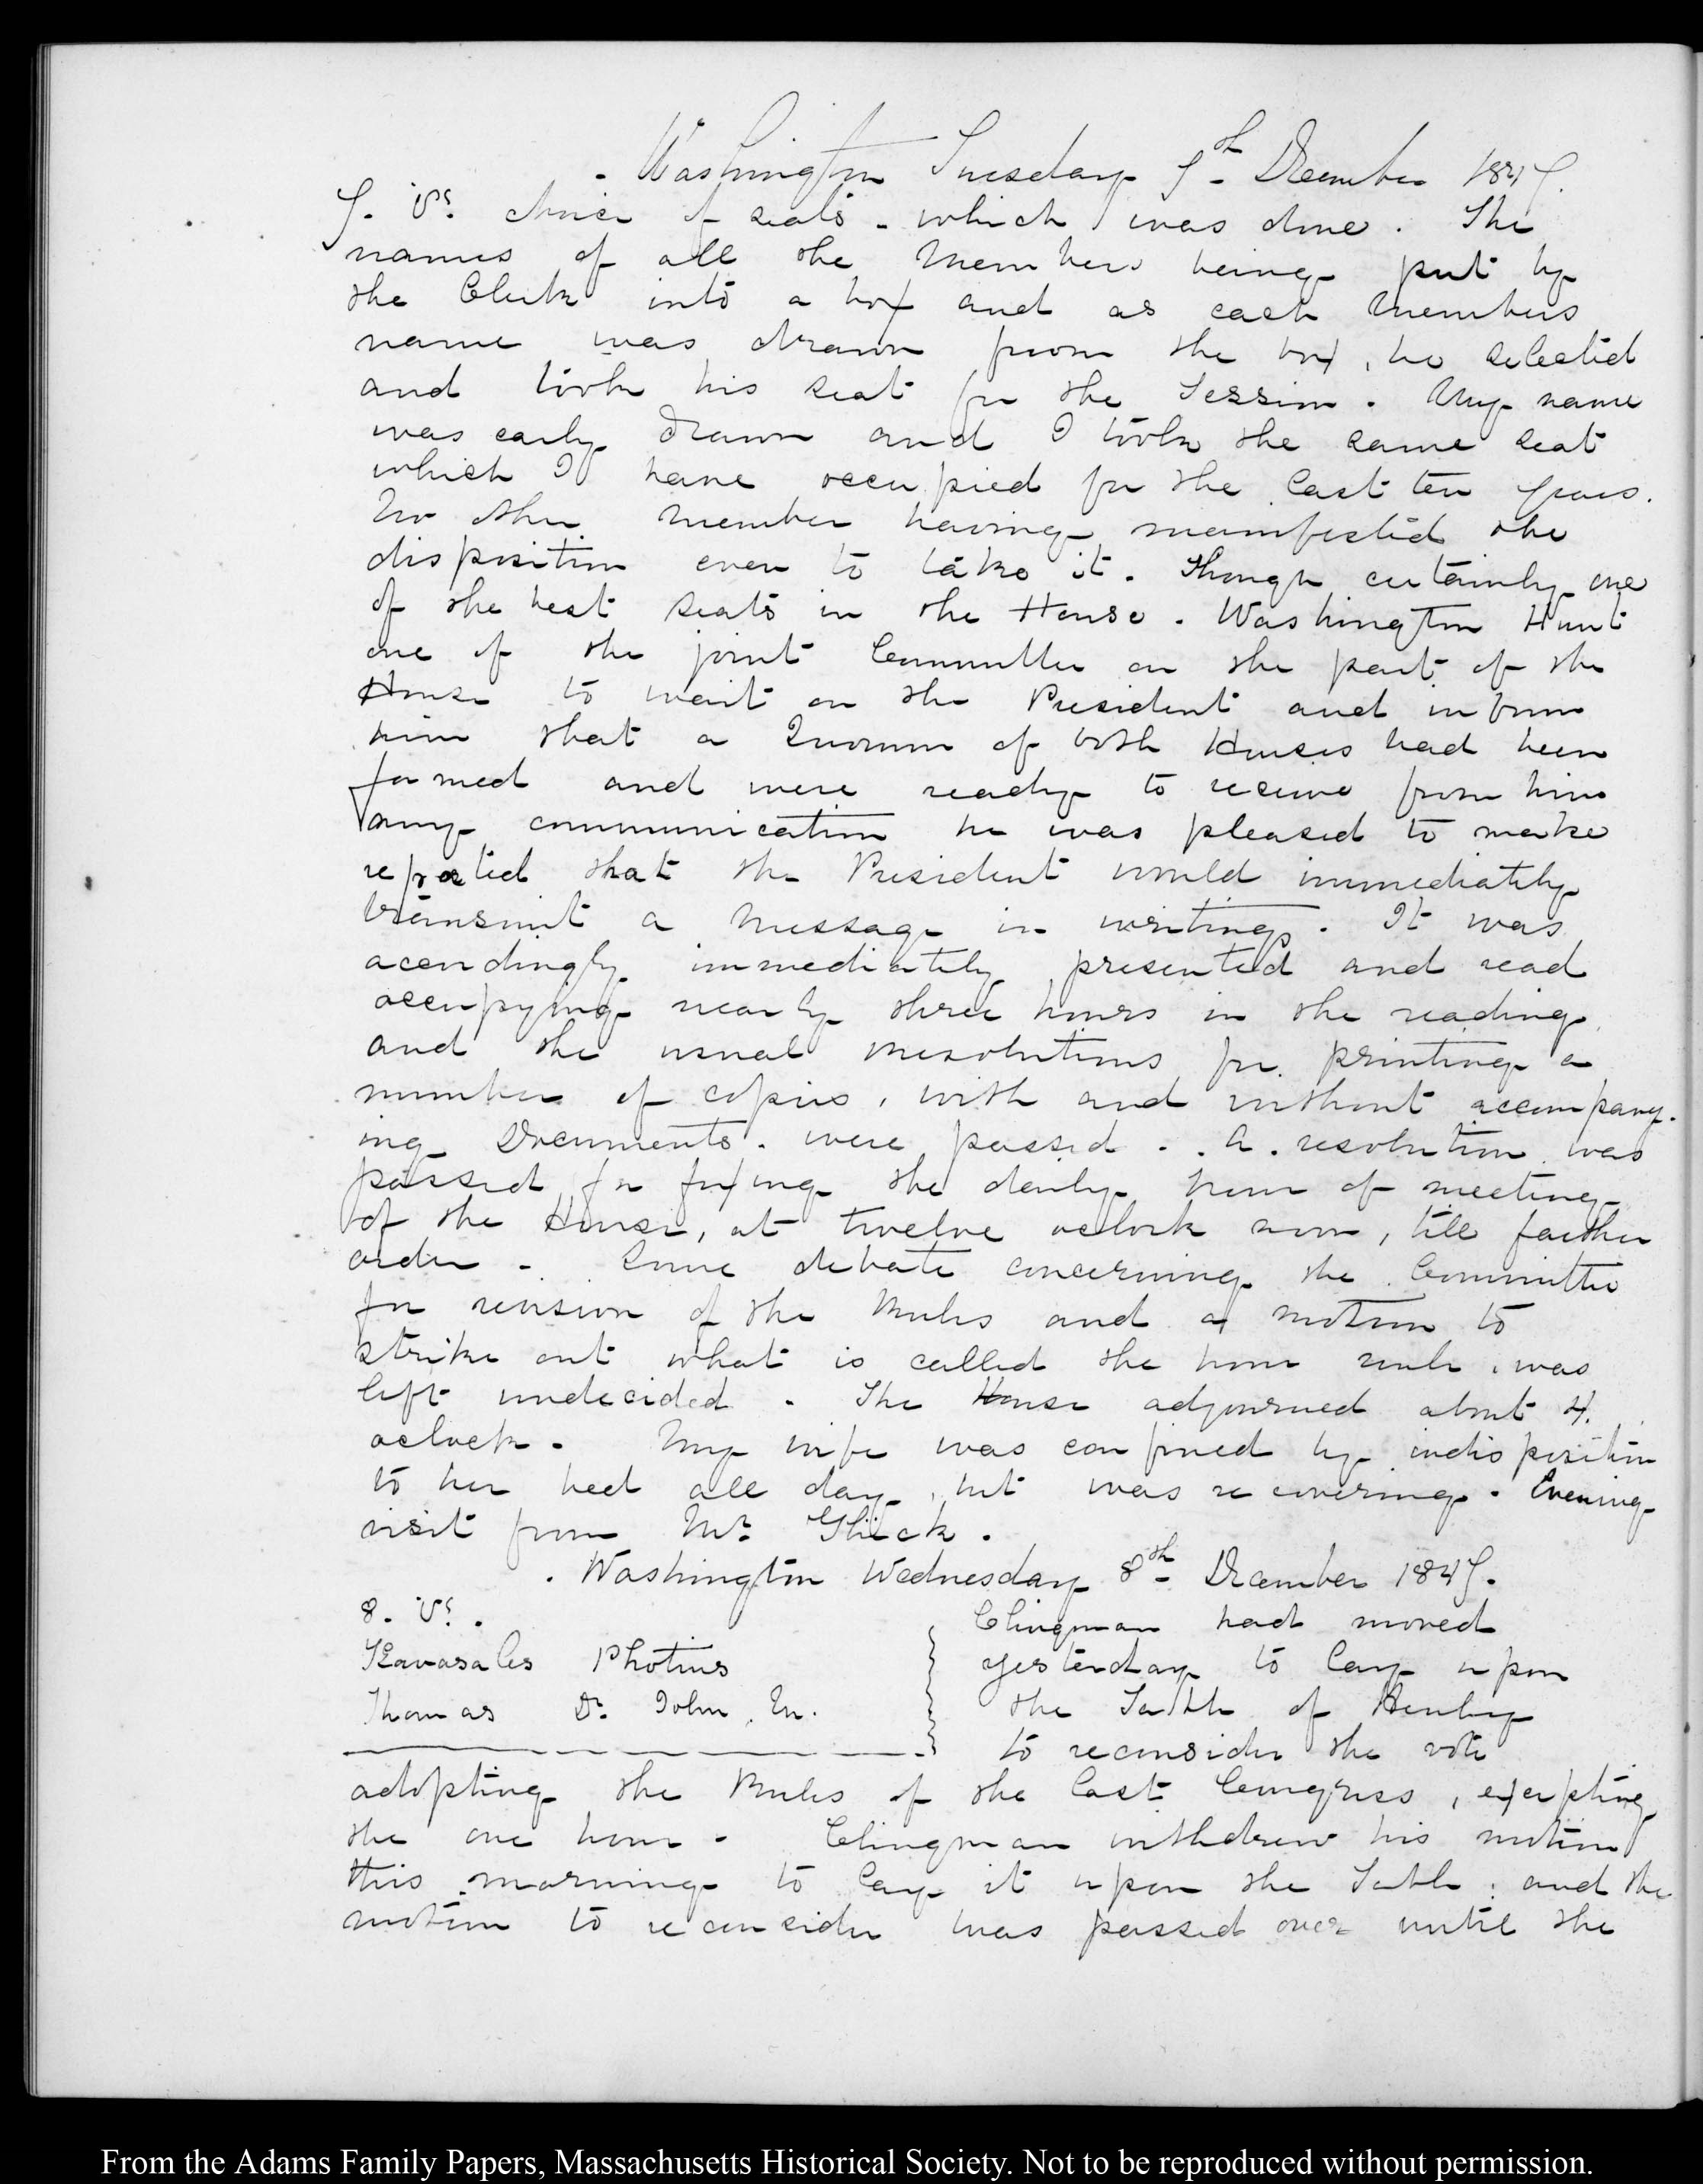 Washington Tuesday 7th December 1847.
7. V^s. choice of seats - which was done. The
names of all the Members being put by
the Clerk into a box and as each Members
name was drawn from the box, he selected
and took his seat for the Session. My name
was early drawn and I took the same seat
which I have occupied for the last ten years.
No other member having manifested the
disposition even to take it. Though certainly one
of the best seats in the House. Washington Hunt
one of the joint Committee on the part of the
House to wait on the President and inform
him that a Quorum of both Houses had been
formed and were ready to receive from him
any communication he was pleased to make
reported that the President would immediately
transmit a Message in writing. It was
accordingly immediately presented and read
occupying nearly three hours in the reading
and the usual resolutions for printing a
number of copies, with and without accompany-
ing Documents were passed. A resolution was
passed for fixing the daily hour of meeting
of the House, at twelve oclock noon, till farther
order. Some debate concerning the Committee
for revision of the Rules and a motion to
strike out what is called the hour rule, was
left undecided. The House adjourned about 4.
oclock. My wife was confined by indisposition
to her bed all day, but was recovering. Evening
visit from Mr.
Washington Wednesday 8th December 1847.
8. V^s.
Kavasales Photius
Thomas Dr. John M.
Clingman had moved
yesterday to lay upon
the Table of Henley
to reconsider the vote
adopting the Rules of the last Congress, excepting
the one hour - Clingman withdrew his motion
this morning to lay it upon the Table: and the
motion to reconsider was passed over until the
From the Adams Family Papers, Massachusetts Historical Society. Not to be reproduced without permission.